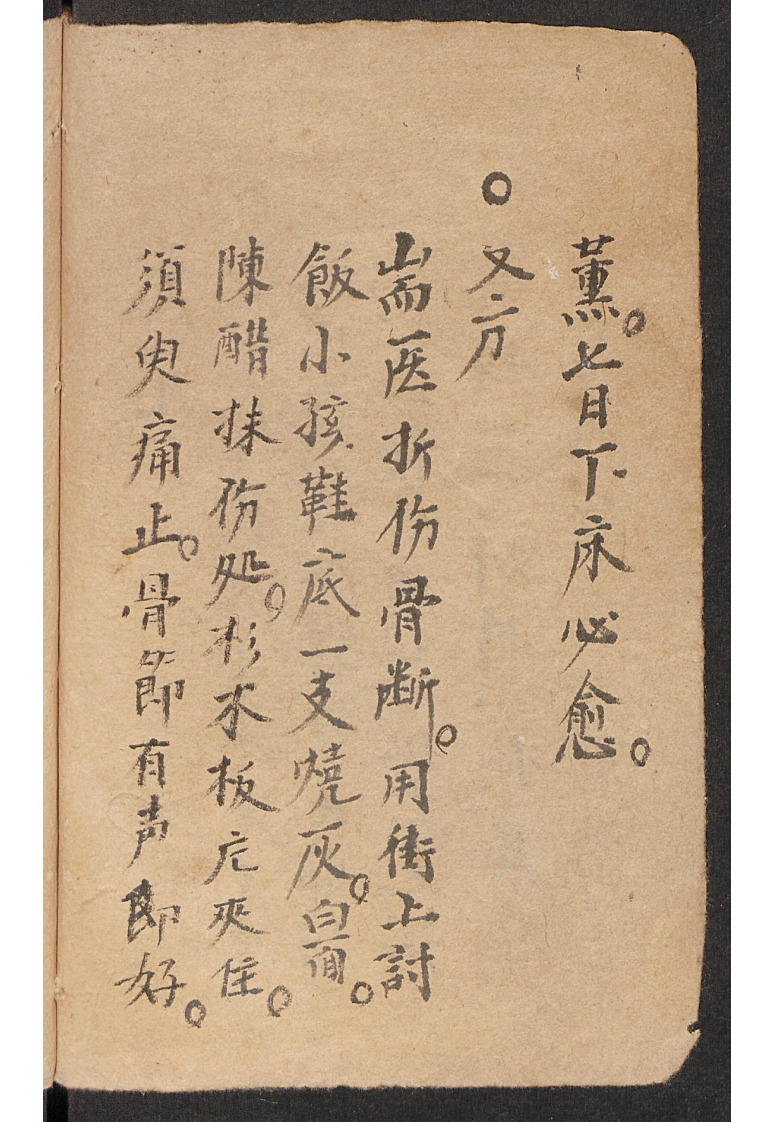 薫。七日下床必愈。
○又方
耑医折伤骨断。用街上討
飯小孩鞋底一支燒灰。白面。
陳醋抹伤処。杉木板庀夾住。
須臾痛止。骨節有声即好。